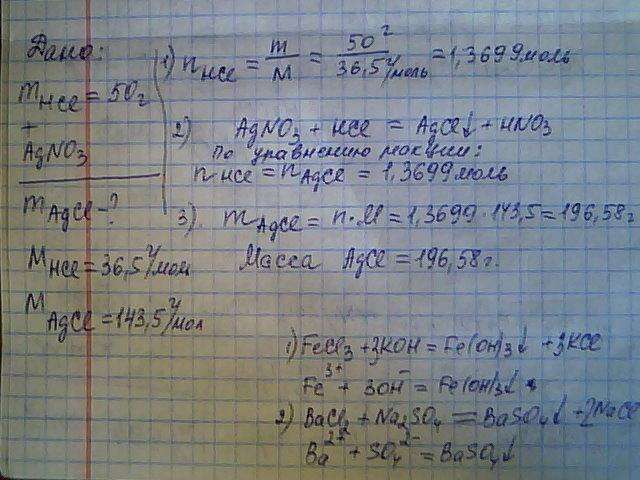 Дано:
m HCl = 50г
+
AgNO₃
m AgCl - ?
M HCl = 36,5 г/мол
M AgCl = 143,5 г/мол
1) n HCl = m/M = 50г/36,5 г/моль = 1,3699 моль
2) AgNO₃ + HCl = AgCl↓ + HNO₃
По уравнению реакции:
n HCl = n AgCl = 1,3699 моль
3). m AgCl = n·M = 1,3699·143,5 = 196,58г
Масса AgCl = 196,58 г.
1) FeCl₃ + 3KOH = Fe(OH)₃↓ + 3KCl
Fe³⁺ + 3OH⁻ = Fe(OH)₃↓
2) BaCl₂ + Na₂SO₄ = BaSO₄↓ + 2NaCl
Ba²⁺ + SO₄²⁻ = BaSO₄↓